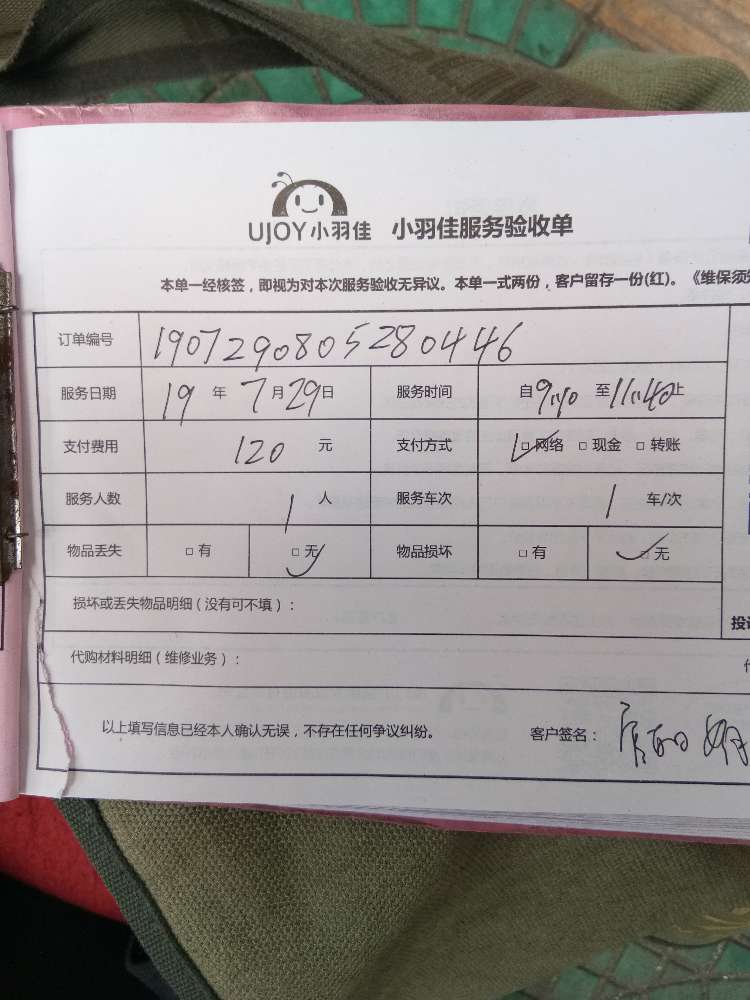 UJOY小羽佳 小羽佳服务验收单
本单一经核签，即视为对本次服务验收无异议。本单一式两份，客户留存一份(红)。《维保须知
订单编号 190729080528​0446
服务日期 19 年 7 月 29 日 服务时间 自 9:40 至 11:40 止
支付费用 120 元 支付方式 □网络 □现金 □转账
服务人数 1 人 服务车次 1 车/次
物品丢失 □有 □无 物品损坏 □有 □无
损坏或丢失物品明细（没有可不填）：
投诉
代购材料明细（维修业务）：
以上填写信息已经本人确认无误，不存在任何争议纠纷。 客户签名：